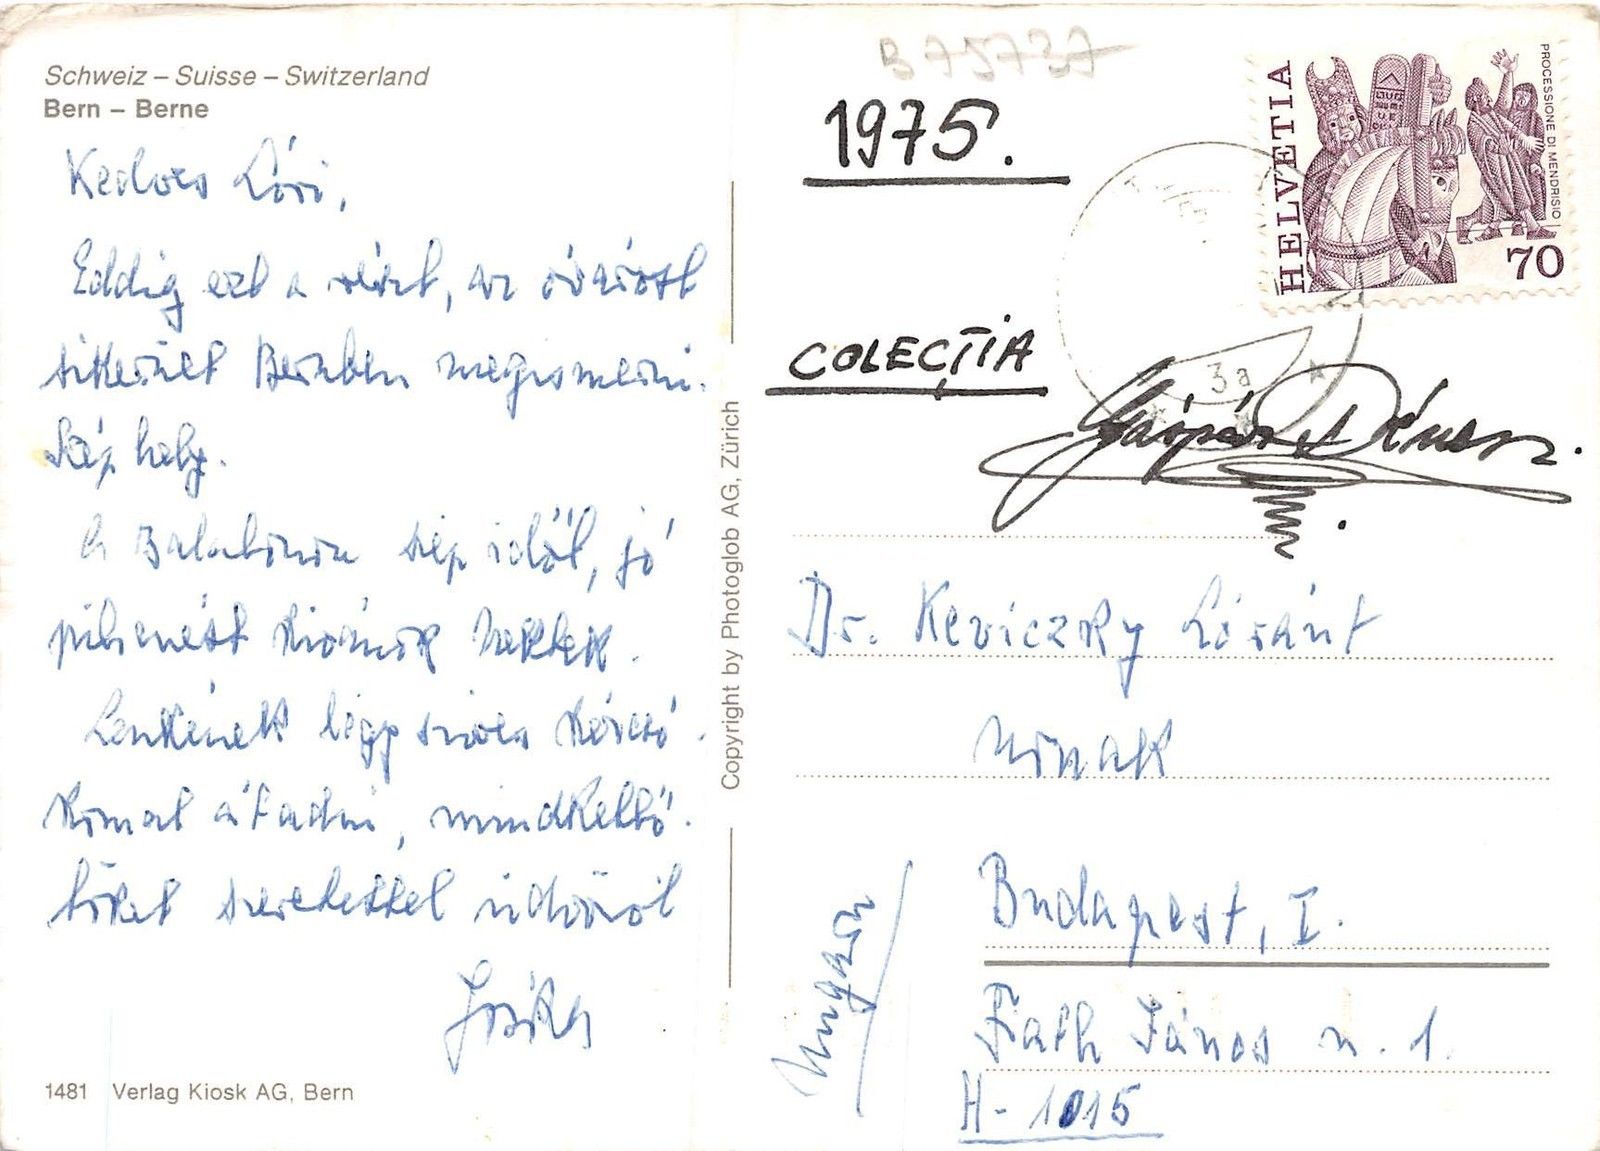 Schweiz – Suisse – Switzerland
Bern – Berne
Kedves Lóri,
Eddig ezt a részt, az óvárost
sikerült Bernben megismerni.
Szép hely.
A Balatonon szép időt, jó
pihenést kívánok Nektek.
Lenkének légy szíves kézcsó-
komat átadni, mindkettő-
töket szeretettel üdvözöl
1481 Verlag Kiosk AG, Bern
Copyright by Photoglob AG, Zürich
B75737
1975.
COLECȚIA
Gáspár Dénes.
HELVETIA
PROCESSIONE DI MENDRISIO
70
3a
Dr. Keviczky Lóránt
úrnak
Budapest, I.
Fáth János u. 1.
H-1015
Ungarn